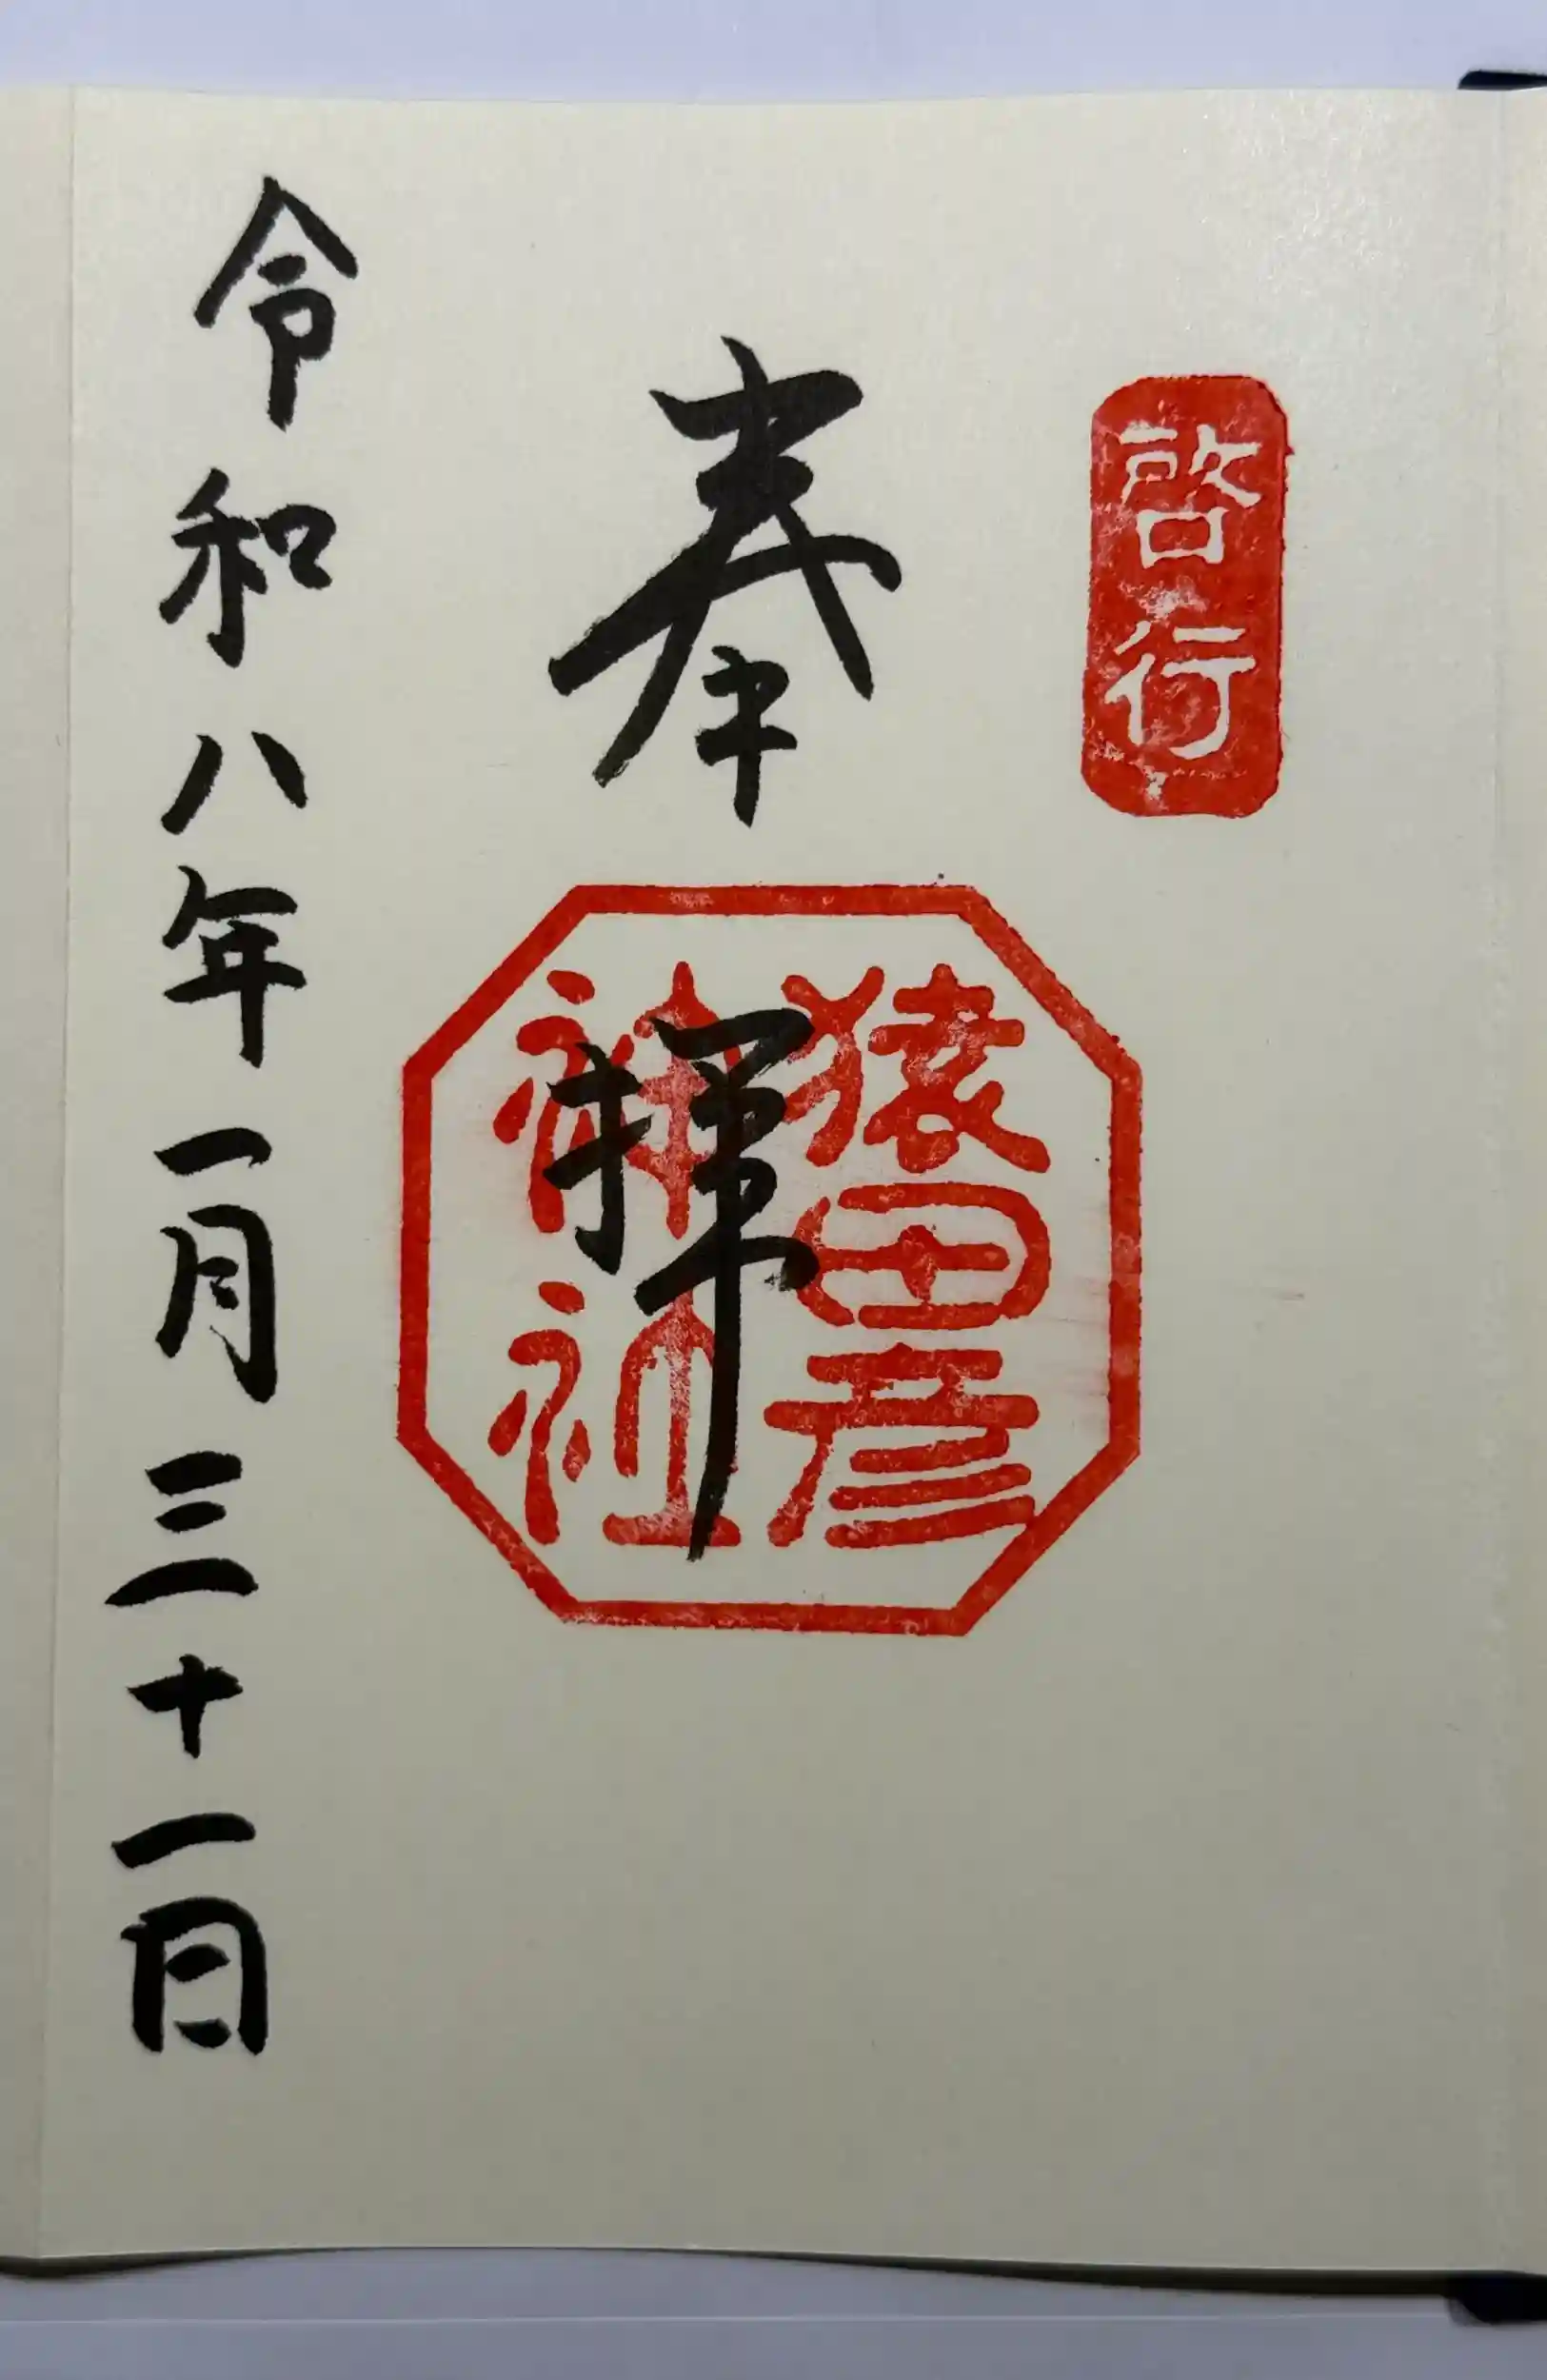 啓行
奉拝
猿田彦
神社
令和八年一月三十一日